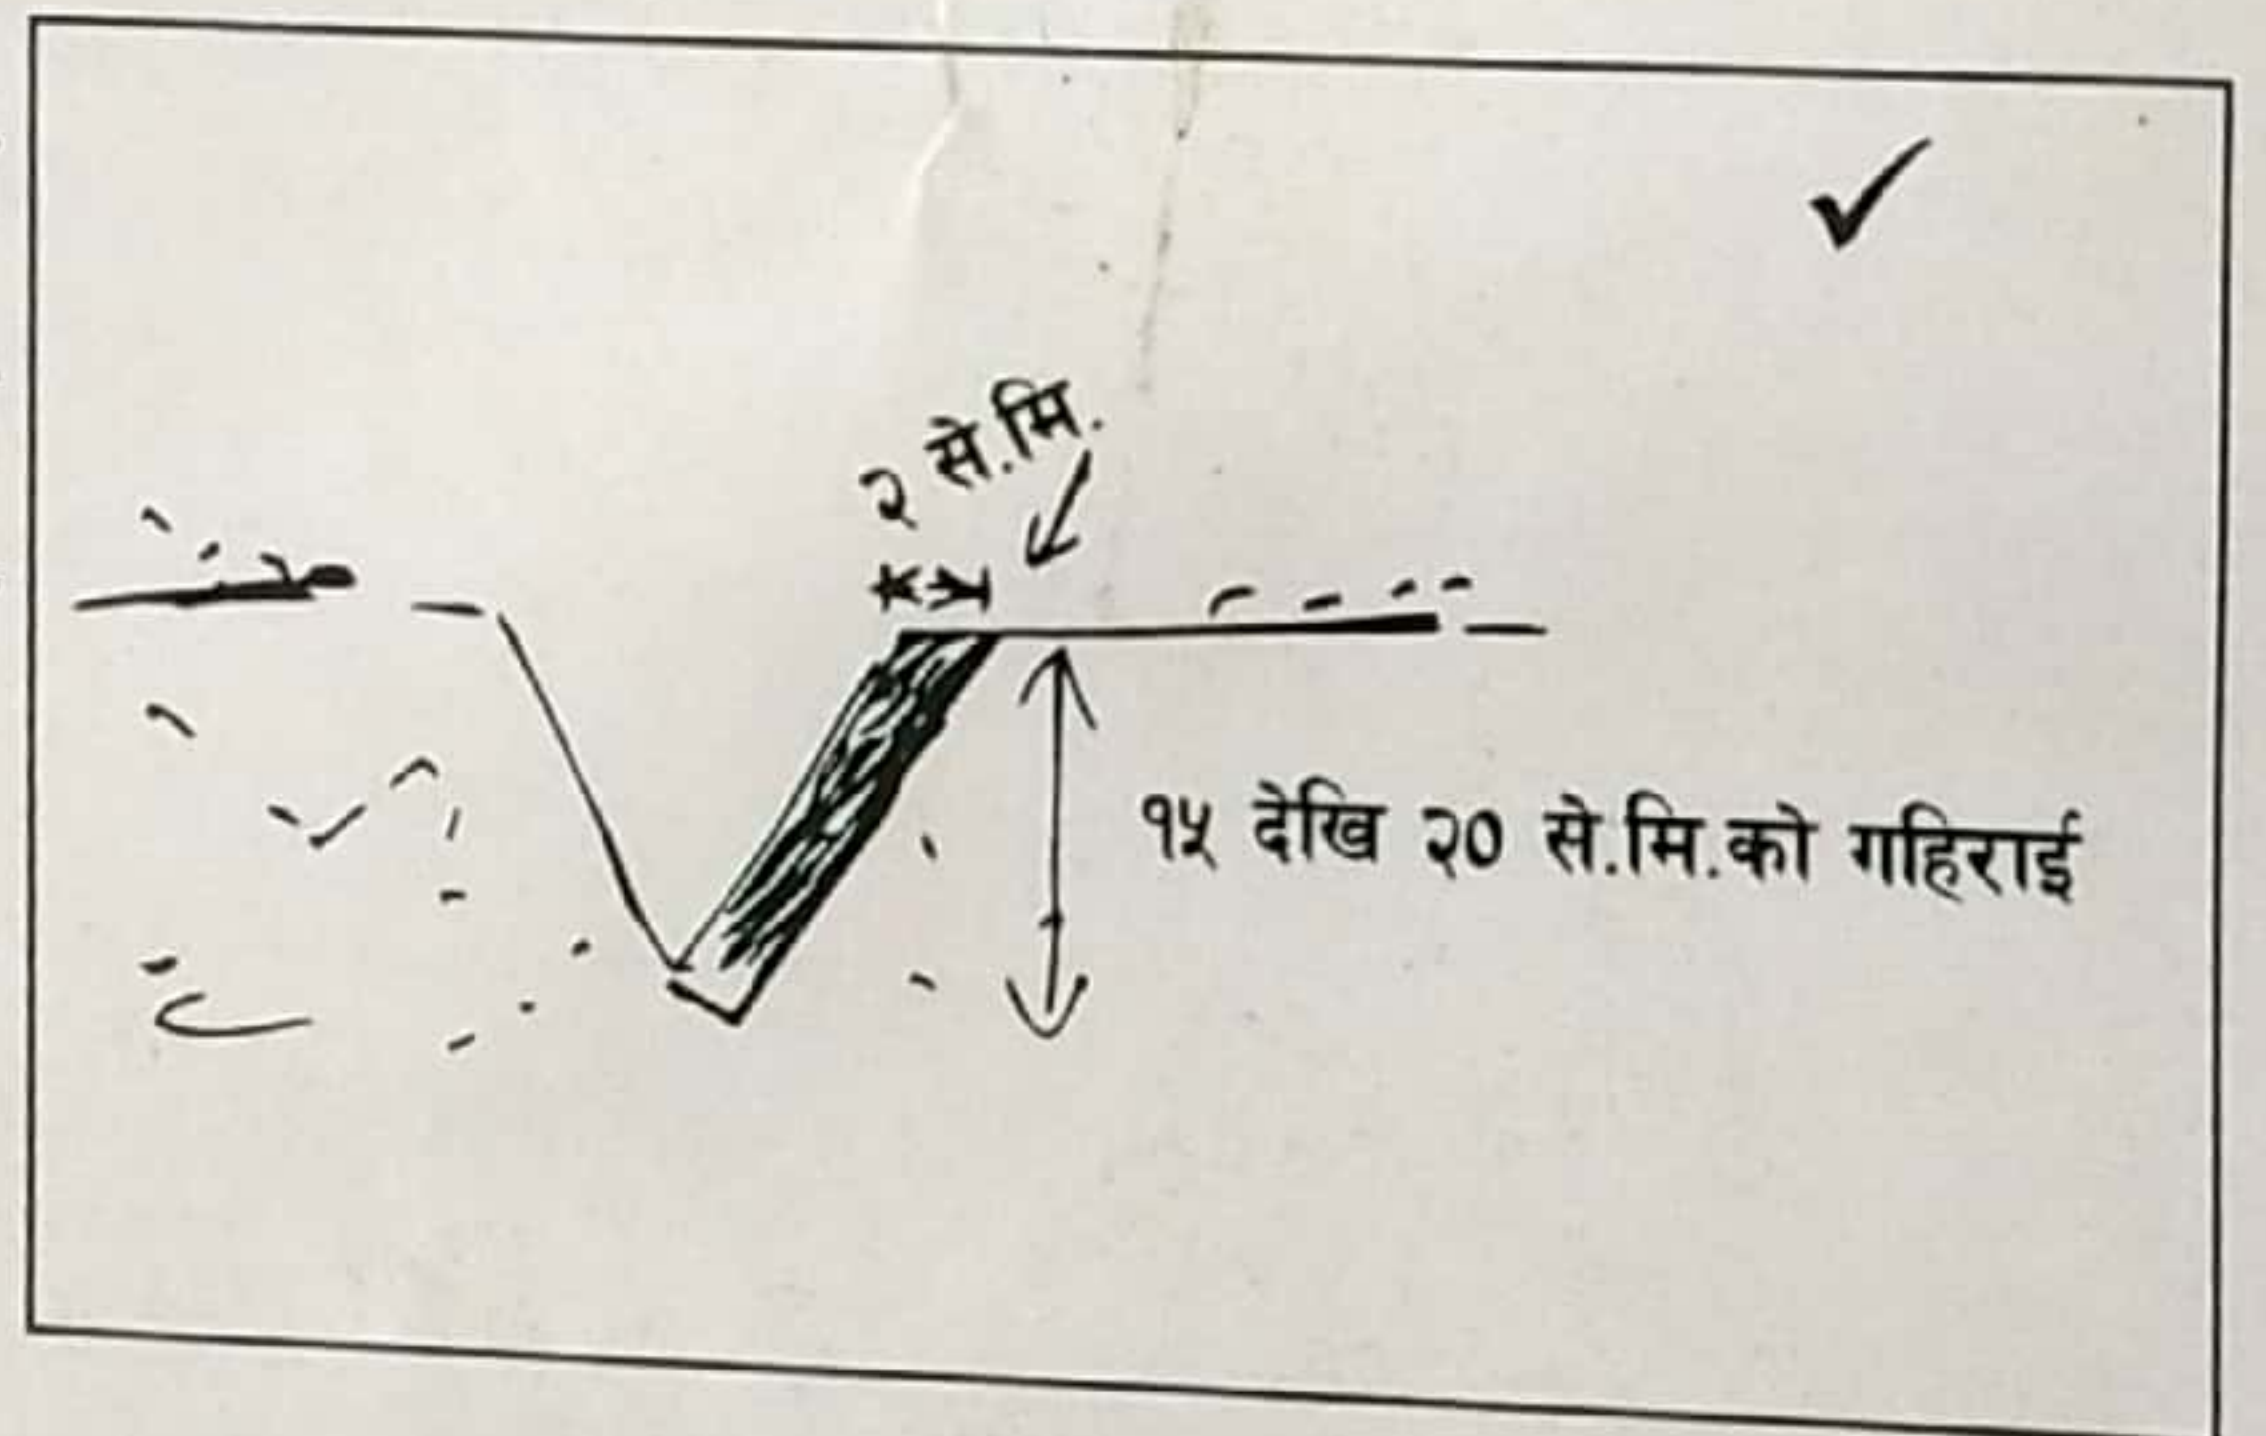 २ से.मि.
१५ देखि २० से.मि.को गहिराई